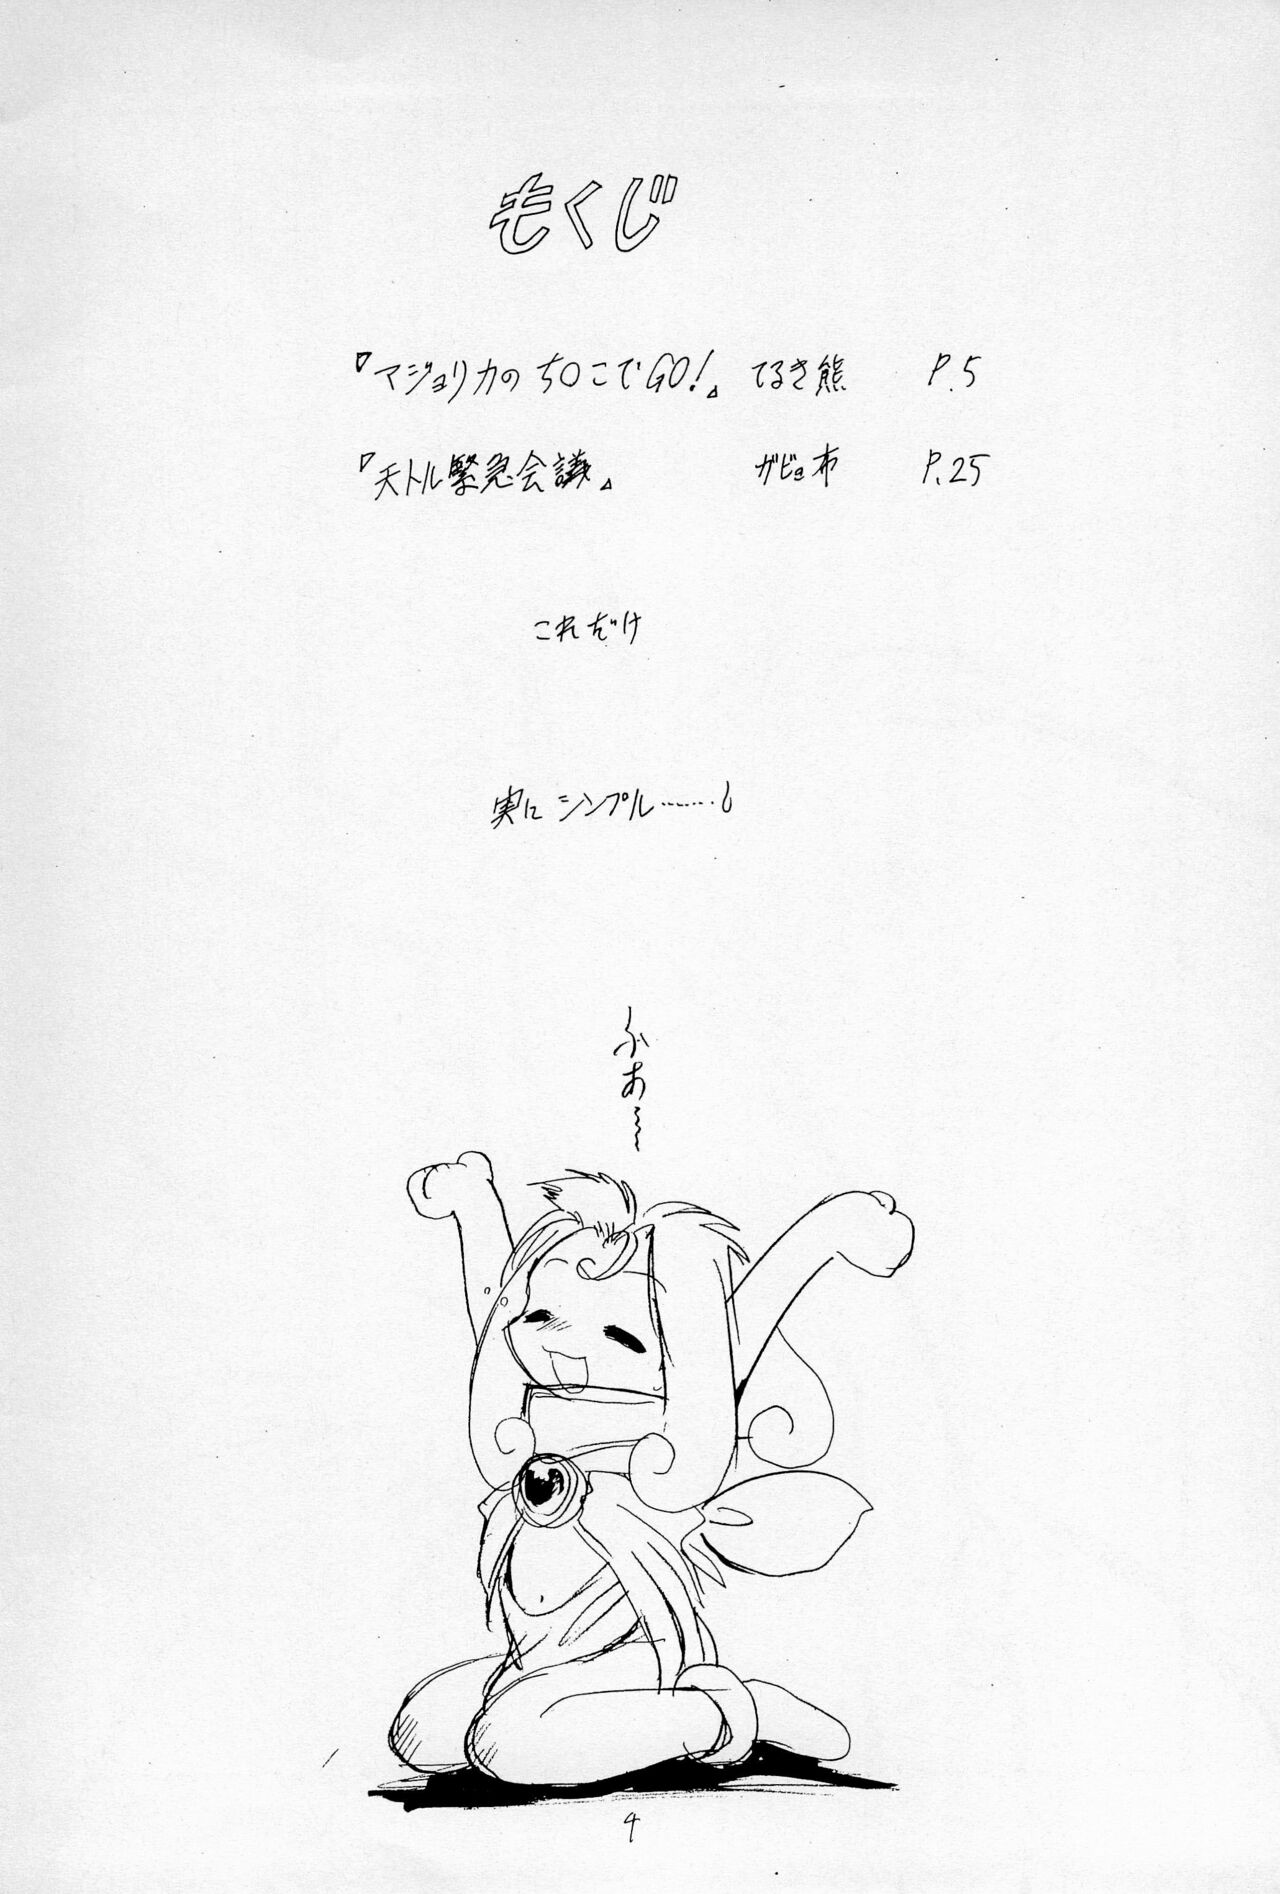 もくじ
『マジョリカのち○こでGO!』 てるき熊 P.5
『天トル緊急会議』 ガビョ布 P.25
これだけ
実にシンプル……
ふあ〜〜
4